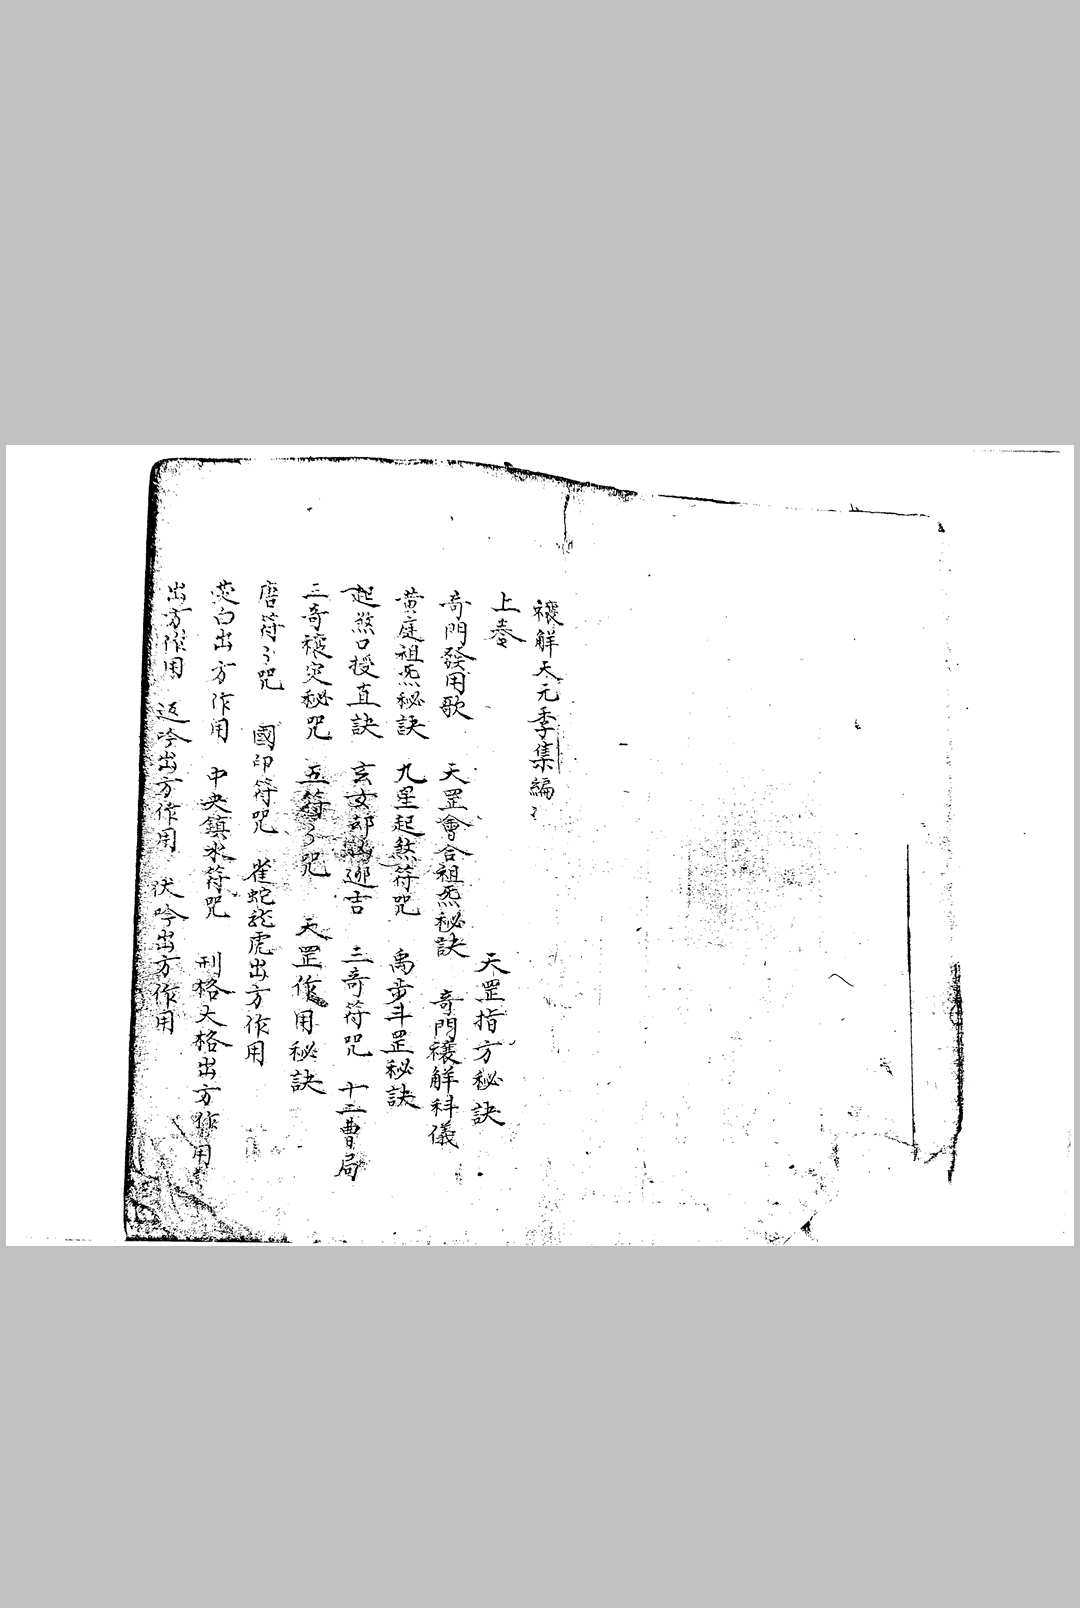 禳解天元季集編
上卷　天罡指方秘訣
奇門發用歌　天罡會合祖炁秘訣　奇門禳解科儀
黃庭祖炁秘訣　九星起煞符咒　禹步斗罡秘訣
起煞口授直訣　玄女却凶迎吉　三奇符咒　十二曹局
三奇禳灾秘咒　五符〻咒　天罡作用秘訣
唐符〻咒　國印符咒　雀蛇龙虎出方作用
荧白出方作用　中央鎮水符咒　刑格大格出方作用
出方作用　返吟出方作用　伏吟出方作用